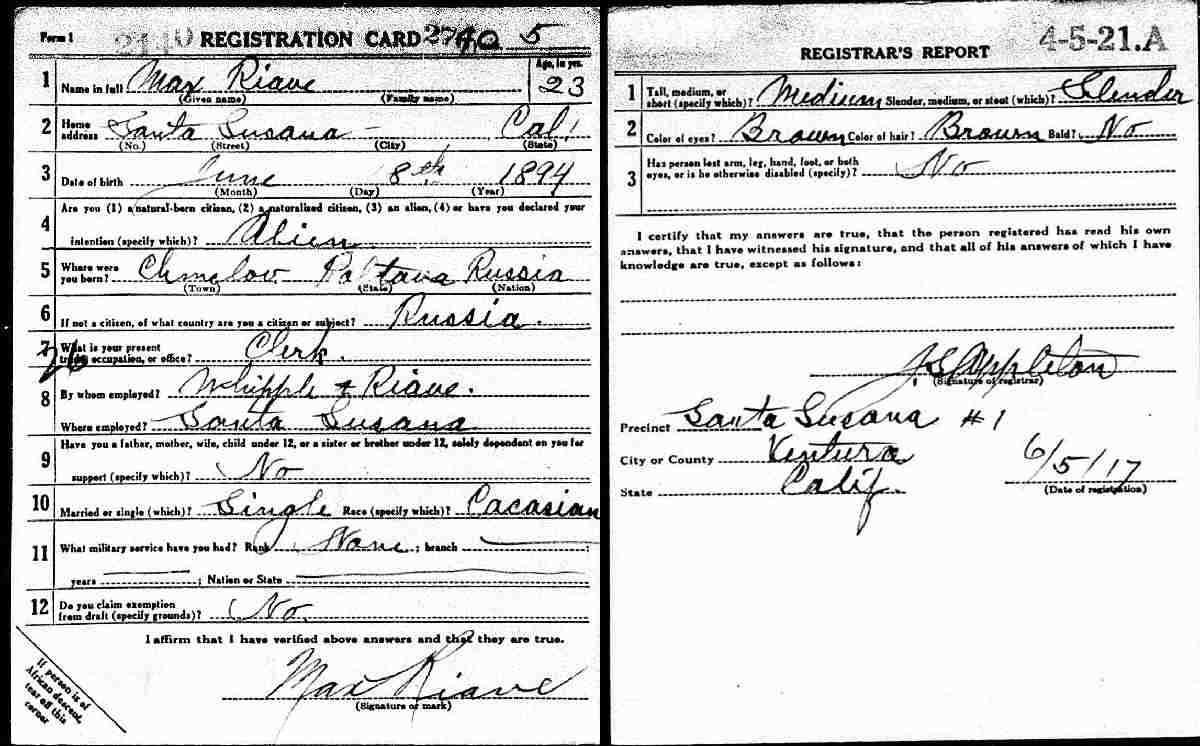 Form 1 2140 REGISTRATION CARD 2740 5
1 Name in full Max Riave Age, in yrs. 23
(Given name) (Family name)
2 Home address Santa Susana - Cal,
(No.) (Street) (City) (State)
3 Date of birth June 8th 1894
(Month) (Day) (Year)
4 Are you (1) a natural-born citizen, (2) a naturalized citizen, (3) an alien, (4) or have you declared your
intention (specify which)? Alien
5 Where were you born? Chmelow Poltava Russia
(Town) (State) (Nation)
6 If not a citizen, of what country are you a citizen or subject? Russia.
7 What is your present trade, occupation, or office? Clerk.
26
8 By whom employed? Whipple + Riave.
Where employed? Santa Susana
9 Have you a father, mother, wife, child under 12, or a sister or brother under 12, solely dependent on you for
support (specify which)? No
10 Married or single (which)? Single Race (specify which)? Cacasian
11 What military service have you had? Rank None; branch
years ; Nation or State
12 Do you claim exemption from draft (specify grounds)? No.
I affirm that I have verified above answers and that they are true.
Max Riave
(Signature or mark)
If person is of
African descent,
tear off this
corner
REGISTRAR'S REPORT 4-5-21.A
1 Tall, medium, or short (specify which)? Medium Slender, medium, or stout (which)? Slender
2 Color of eyes? Brown Color of hair? Brown Bald? No
3 Has person lost arm, leg, hand, foot, or both
eyes, or is he otherwise disabled (specify)? No
I certify that my answers are true, that the person registered has read his own
answers, that I have witnessed his signature, and that all of his answers of which I have
knowledge are true, except as follows:
J. S. Appleton
(Signature of registrar)
Precinct Santa Susana #1
City or County Ventura
State Calif. 6/5/17
(Date of registration)